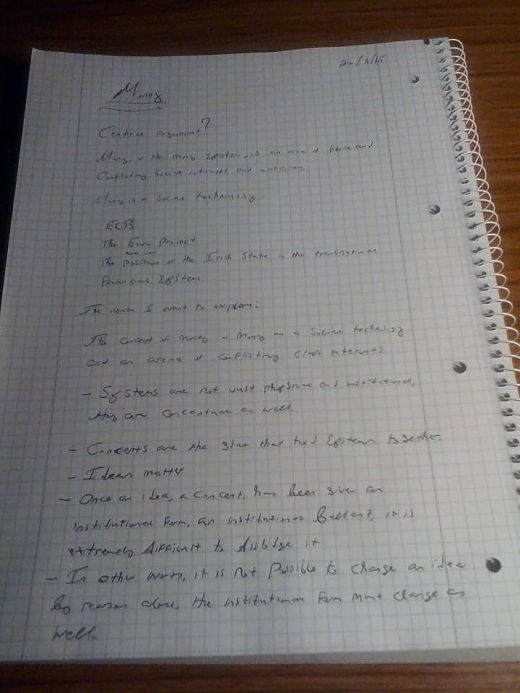 Money
Central argument?
Money, or the money system, is an area of force and
Conflicting social interests and
Money is a social technology
ECB
The Euro Project
The position of the Irish State in the transnational
financial system
The ideas I want to explore:
The concept of money - money as a social technology
and an arena of conflicting class interests
- Systems are not just physical and institutional,
they are conceptual as well.
- Concepts are the glue that hold systems together.
- Ideas matter
- Once an idea, a concept, has been given an
institutional form, an institutional ballast, it is
extremely difficult to dislodge it
- In other words, it is not possible to change an idea
by reason alone, the institutional form must change as
well